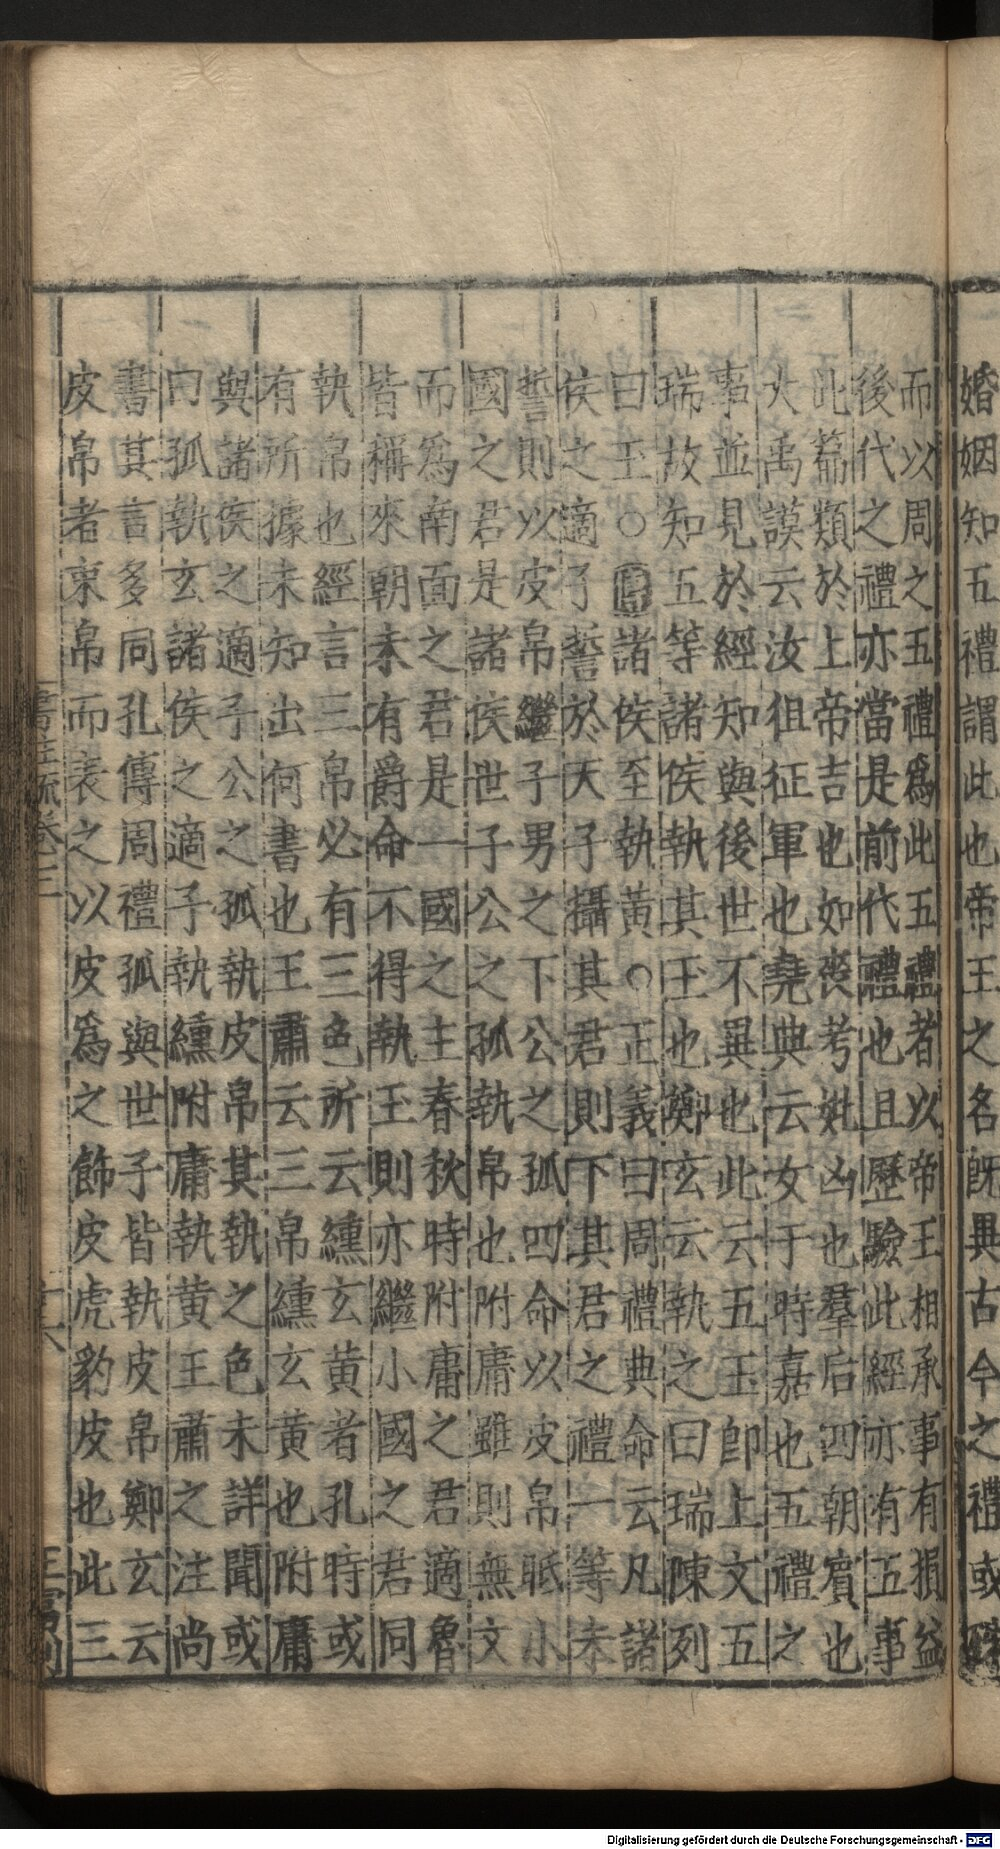 婚姻知五禮謂此也帝王之名既異古今之禮或殊
而以周之五禮爲此五禮者以帝王相承事有損益
後代之禮亦當是前代禮也且歷驗此經亦有五事
此篇類於上帝吉也如喪考妣凶也羣后四朝賓也
大禹謨云汝徂征軍也堯典云女于時嘉也五禮之
事並見於經知與後世不異也此云五玉卽上文五
瑞故知五等諸侯執其玉也鄭玄云執之曰瑞陳列
曰玉○傳諸侯至執黃○正義曰周禮典命云凡諸
侯之適子誓於天子攝其君則下其君之禮一等未
誓則以皮帛繼子男之下公之孤四命以皮帛眡小
國之君是諸侯世子公之孤執帛也附庸雖則無文
而爲南面之君是一國之主春秋時附庸之君適魯
皆稱來朝未有爵命不得執玉則亦繼小國之君同
執帛也經言三帛必有三色所云纁玄黃者孔時或
有所據未知出何書也王肅云三帛纁玄黃也附庸
與諸侯之適子公之孤執皮帛其執之色未詳聞或
曰孤執玄諸侯之適子執纁附庸執黃王肅之注尚
書其言多同孔傳周禮孤與世子皆執皮帛鄭玄云
皮帛者束帛而表之以皮爲之飾皮虎豹皮也此三
Digitalisierung gefördert durch die Deutsche Forschungsgemeinschaft - DFG